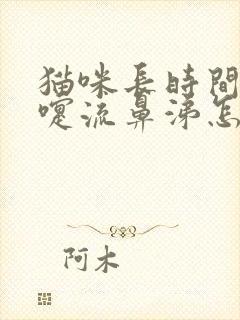 猫咪長時間
嚏流鼻涕怎
阿木